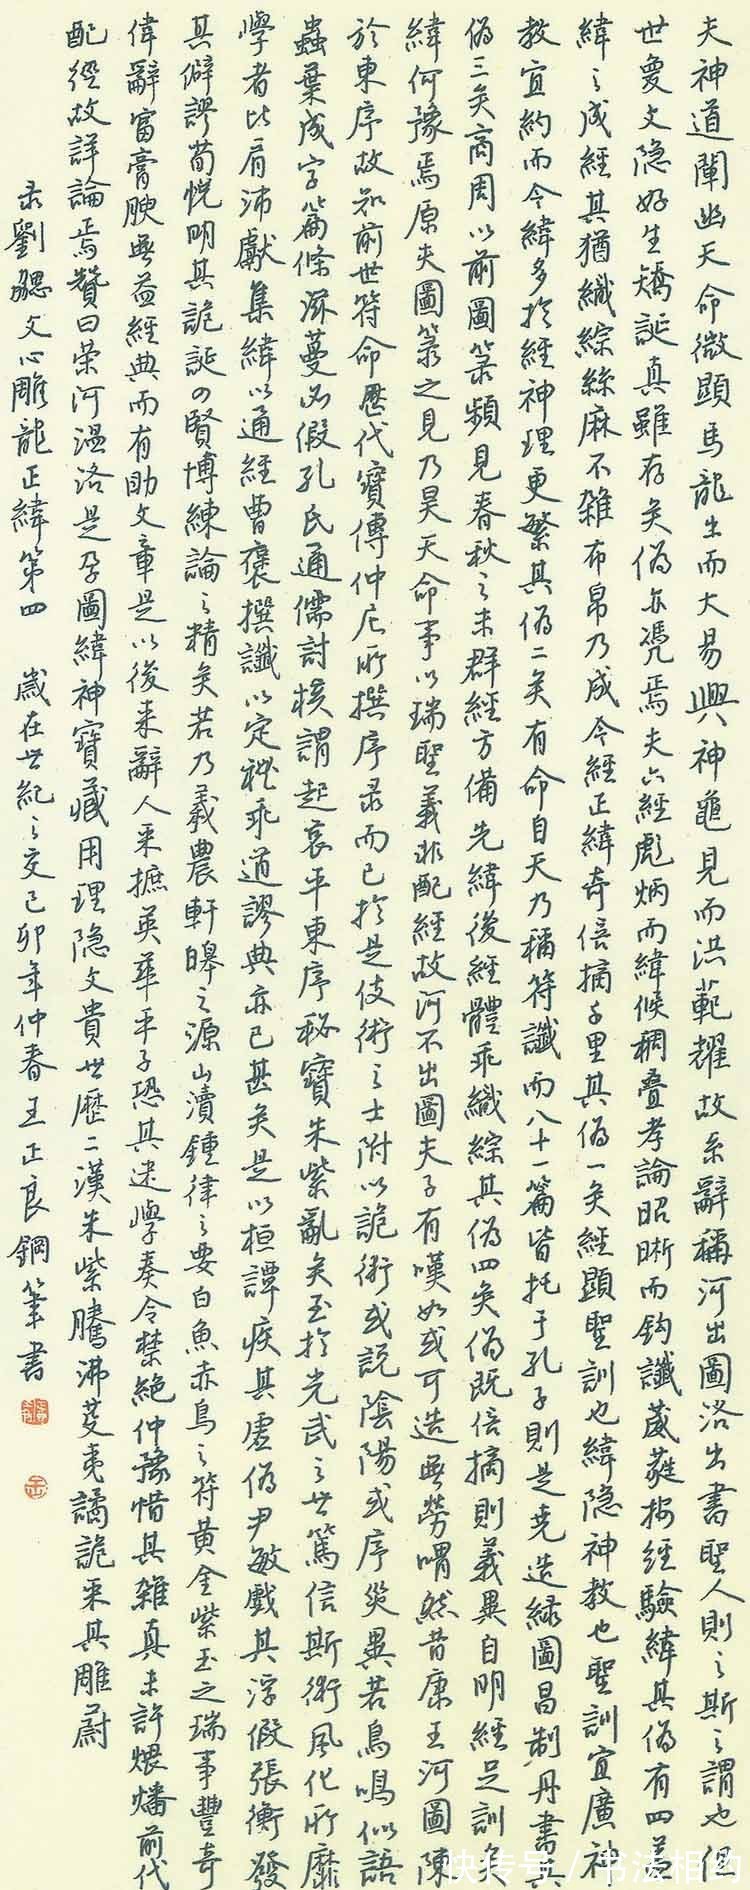 夫神道闡幽天命微顯馬龍出而大易興神龜見而洪範耀故系辭稱河出圖洛出書聖人則之斯之謂也但
世夐文隐好生矯誕真雖存矣偽亦凭焉夫六經彪炳而緯候稠疊孝論昭晰而鈎讖葳蕤按經驗緯其偽有四蓋
緯之成經其猶織綜絲麻不雜布帛乃成今經正緯奇倍摘千里其偽一矣經顯聖訓也緯隐神教也聖訓宜廣神
教宜約而今緯多於經神理更繁其偽二矣有命自天乃稱符讖而八十一篇皆托于孔子則是堯造緑圖昌制丹書其
偽三矣商周以前圖箓頻見春秋之末群經方備先緯後經體乖織綜其偽四矣偽既倍摘則義異自明經足訓矣
緯何豫焉原夫圖箓之見乃昊天命事以瑞聖義非配經故河不出圖夫子有嘆如或可造無勞喟然昔康王河圖陳
於東序故知前世符命歷代寶傳仲尼所撰序录而已於是伎術之士附以詭術或説陰陽或序災異若鳥鳴似語
蟲葉成字篇條滋蔓必假孔氏通儒討核謂起哀平東序秘寶朱紫亂矣至於光武之世篤信斯術風化所靡
學者比肩沛獻集緯以通經曹褒撰讖以定禮乖道謬典亦已甚矣是以桓譚疾其虚偽尹敏戲其浮假張衡發
其僻謬荀悦明其詭誕四賢博練論之精矣若乃羲農軒皞之源山瀆鍾律之要白魚赤烏之符黄金紫玉之瑞事豐奇
偉辭富膏腴無益經典而有助文章是以後来辭人采摭英華平子恐其迷學奏令禁絶仲豫惜其雜真未許煨燔前代
配經故詳論焉贊曰荣河温洛是孕圖緯神寶藏用理隐文貴世歷二漢朱紫騰沸芟夷譎詭采其雕蔚
录劉勰文心雕龍正緯第四 歲在世紀之交己卯年仲春王正良鋼筆書
快传号/书法相约